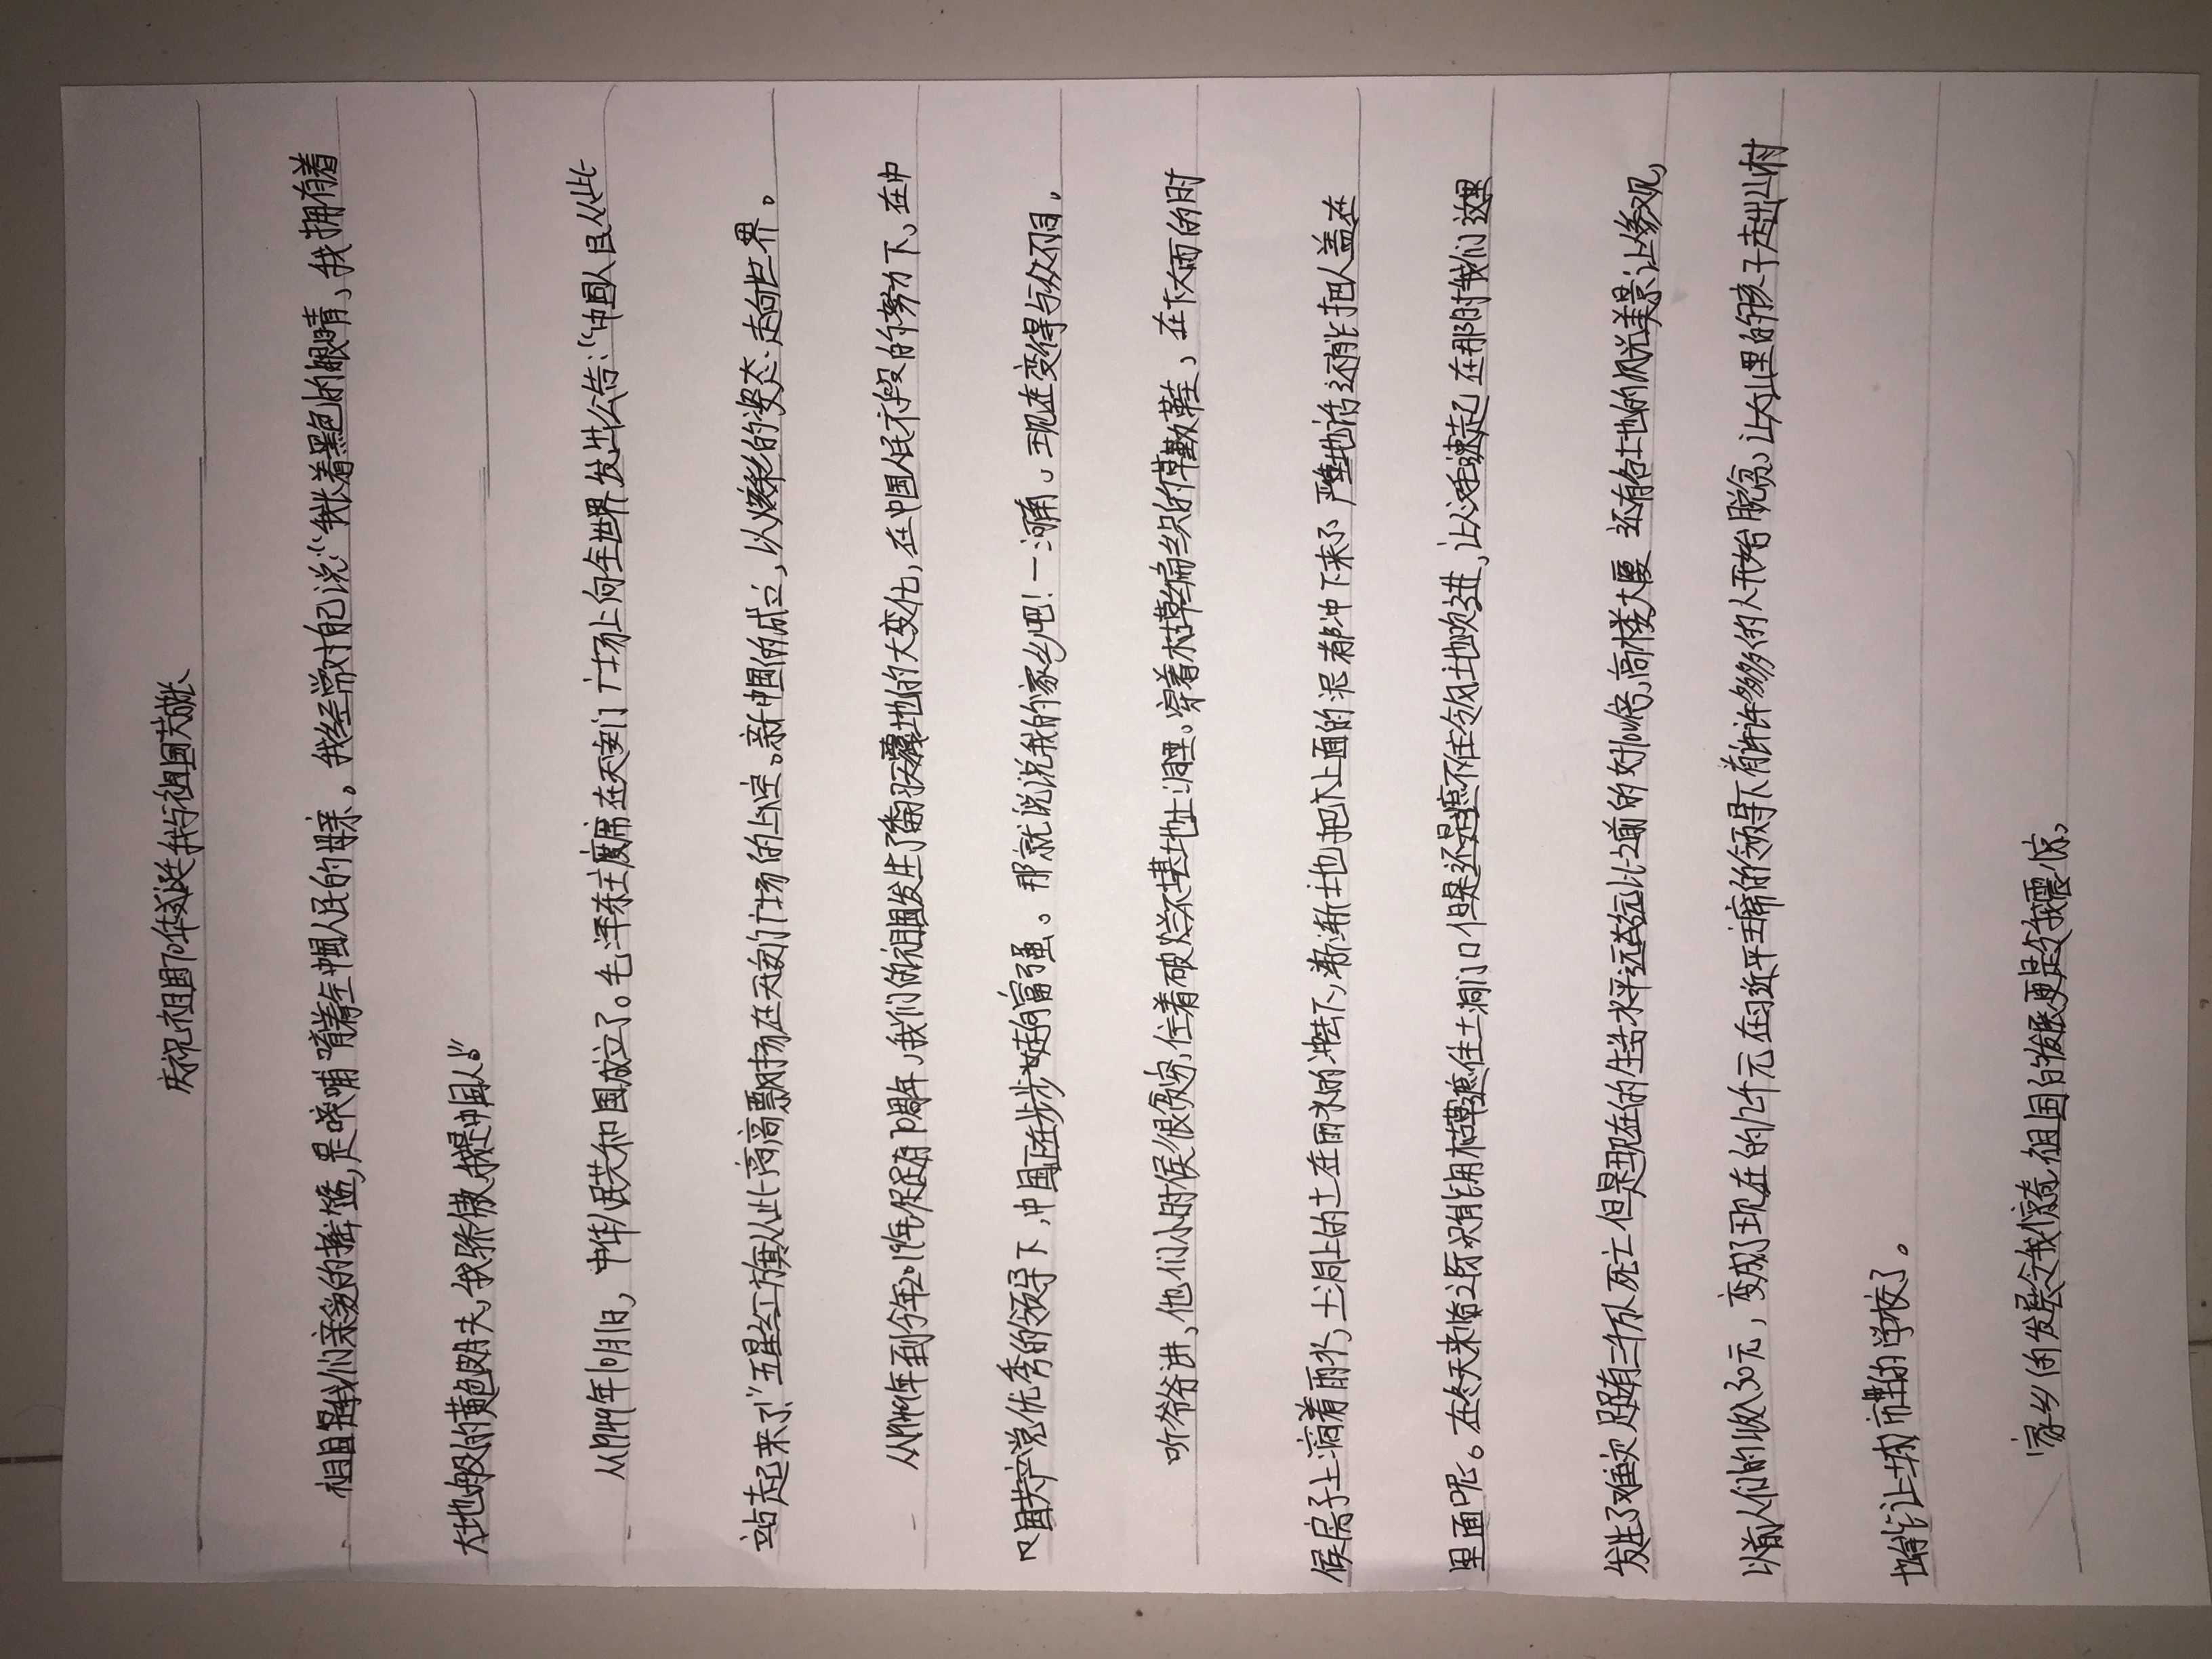 庆祝祖国70华诞我与祖国共成长
祖国是我们亲爱的摇篮,是哺育着全中国人民的母亲。我经常对自己说:“我长着黑色的眼睛,我拥有着
大地般的黄色皮肤,我骄傲,我是中国人。”
从1949年10月1日,中华人民共和国成立了。毛泽东主席在天安门广场上向全世界发出公告:“中国人民从此
站起来了!”五星红旗从此高高飘扬在天安门广场的上空。新中国的成立,以爆彩的姿态走向世界。
从1949年到今年2019年足足有70周年,我们的祖国发生了翻天覆地的大变化,在中国人民不段的努力下,在中
国共产党优秀的领导下,中国正在步步走向富强。那就说说我的家乡吧!一河南。现在变得与众不同。
听爷爷讲,他们小时候很贫穷,住着破烂不堪地土洞里。穿着枯草编织的草鞋,在下大雨的时
候房子上滴着雨水,土洞上的土在雨水的冲洗下,渐渐地把上面的泥都冲下来了 严重地话还有能把人盖在
里面呢。在冬天来临之际只能用枯草遮住土洞门口 但是还是遮不住冷风地吹进,让人难速起 在那时我们这里
发生了难次 足足有三千万人死亡 但是现在的生活水平远远比之前的对10倍,高楼大厦 还有各地的风光美景让人参观,
以前人们的收入30元,变成了现在的几千元 在习近平主席的领导下 有许许多多的人开始脱贫,让大山里的孩子走出山村
也能让去城市里的学校了。
家乡的发展令我惊奇 祖国的发展更是令我震惊,